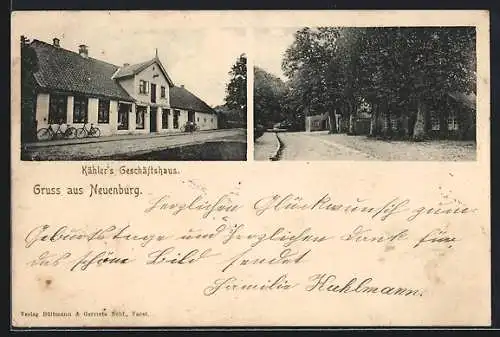 Kähler's Geschäftshaus.
Gruss aus Neuenburg.
herzlichen Glückwunsch zum
Geburtstage und herzlichen Dank für
das schöne Bild sendet
Familie Kuhlmann.
Verlag Bültmann & Gerriets Nchf., Varel.